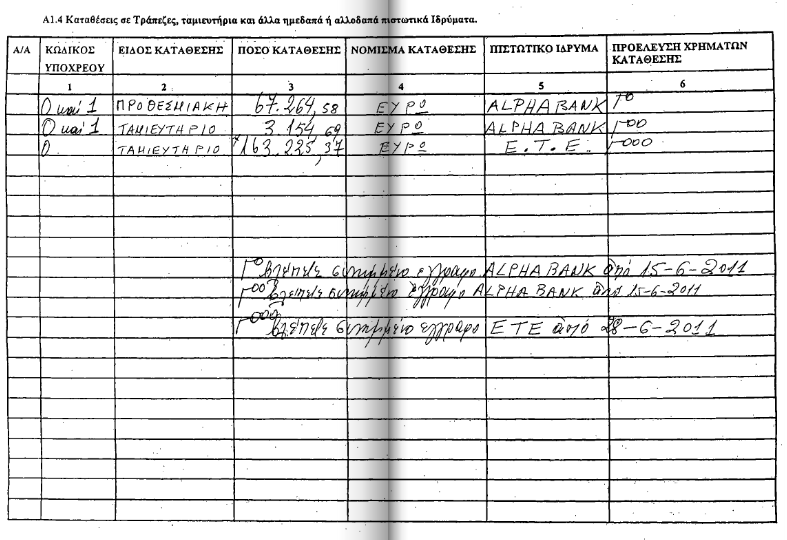 A1.4 Καταθέσεις σε Τράπεζες, ταμιευτήρια και άλλα ημεδαπά ή αλλοδαπά πιστωτικά Ιδρύματα.
Α/Α ΚΩΔΙΚΟΣ ΥΠΟΧΡΕΟΥ ΕΙΔΟΣ ΚΑΤΑΘΕΣΗΣ ΠΟΣΟ ΚΑΤΑΘΕΣΗΣ ΝΟΜΙΣΜΑ ΚΑΤΑΘΕΣΗΣ ΠΙΣΤΩΤΙΚΟ ΙΔΡΥΜΑ ΠΡΟΕΛΕΥΣΗ ΧΡΗΜΑΤΩΝ ΚΑΤΑΘΕΣΗΣ
1 2 3 4 5 6
0 και 1 ΠΡΟΘΕΣΜΙΑΚΗ 67.264,58 ΕΥΡΩ ALPHA BANK
0 και 1 ΤΑΜΙΕΥΤΗΡΙΟ 3.154,69 ΕΥΡΩ ALPHA BANK
0 ΤΑΜΙΕΥΤΗΡΙΟ 163.225,37 ΕΥΡΩ Ε.Τ.Ε.
βλέπετε συνημμένο έγγραφο ALPHA BANK από 15-6-2011
βλέπετε συνημμένο έγγραφο ALPHA BANK από 15-6-2011
βλέπετε συνημμένο έγγραφο ΕΤΕ από 28-6-2011